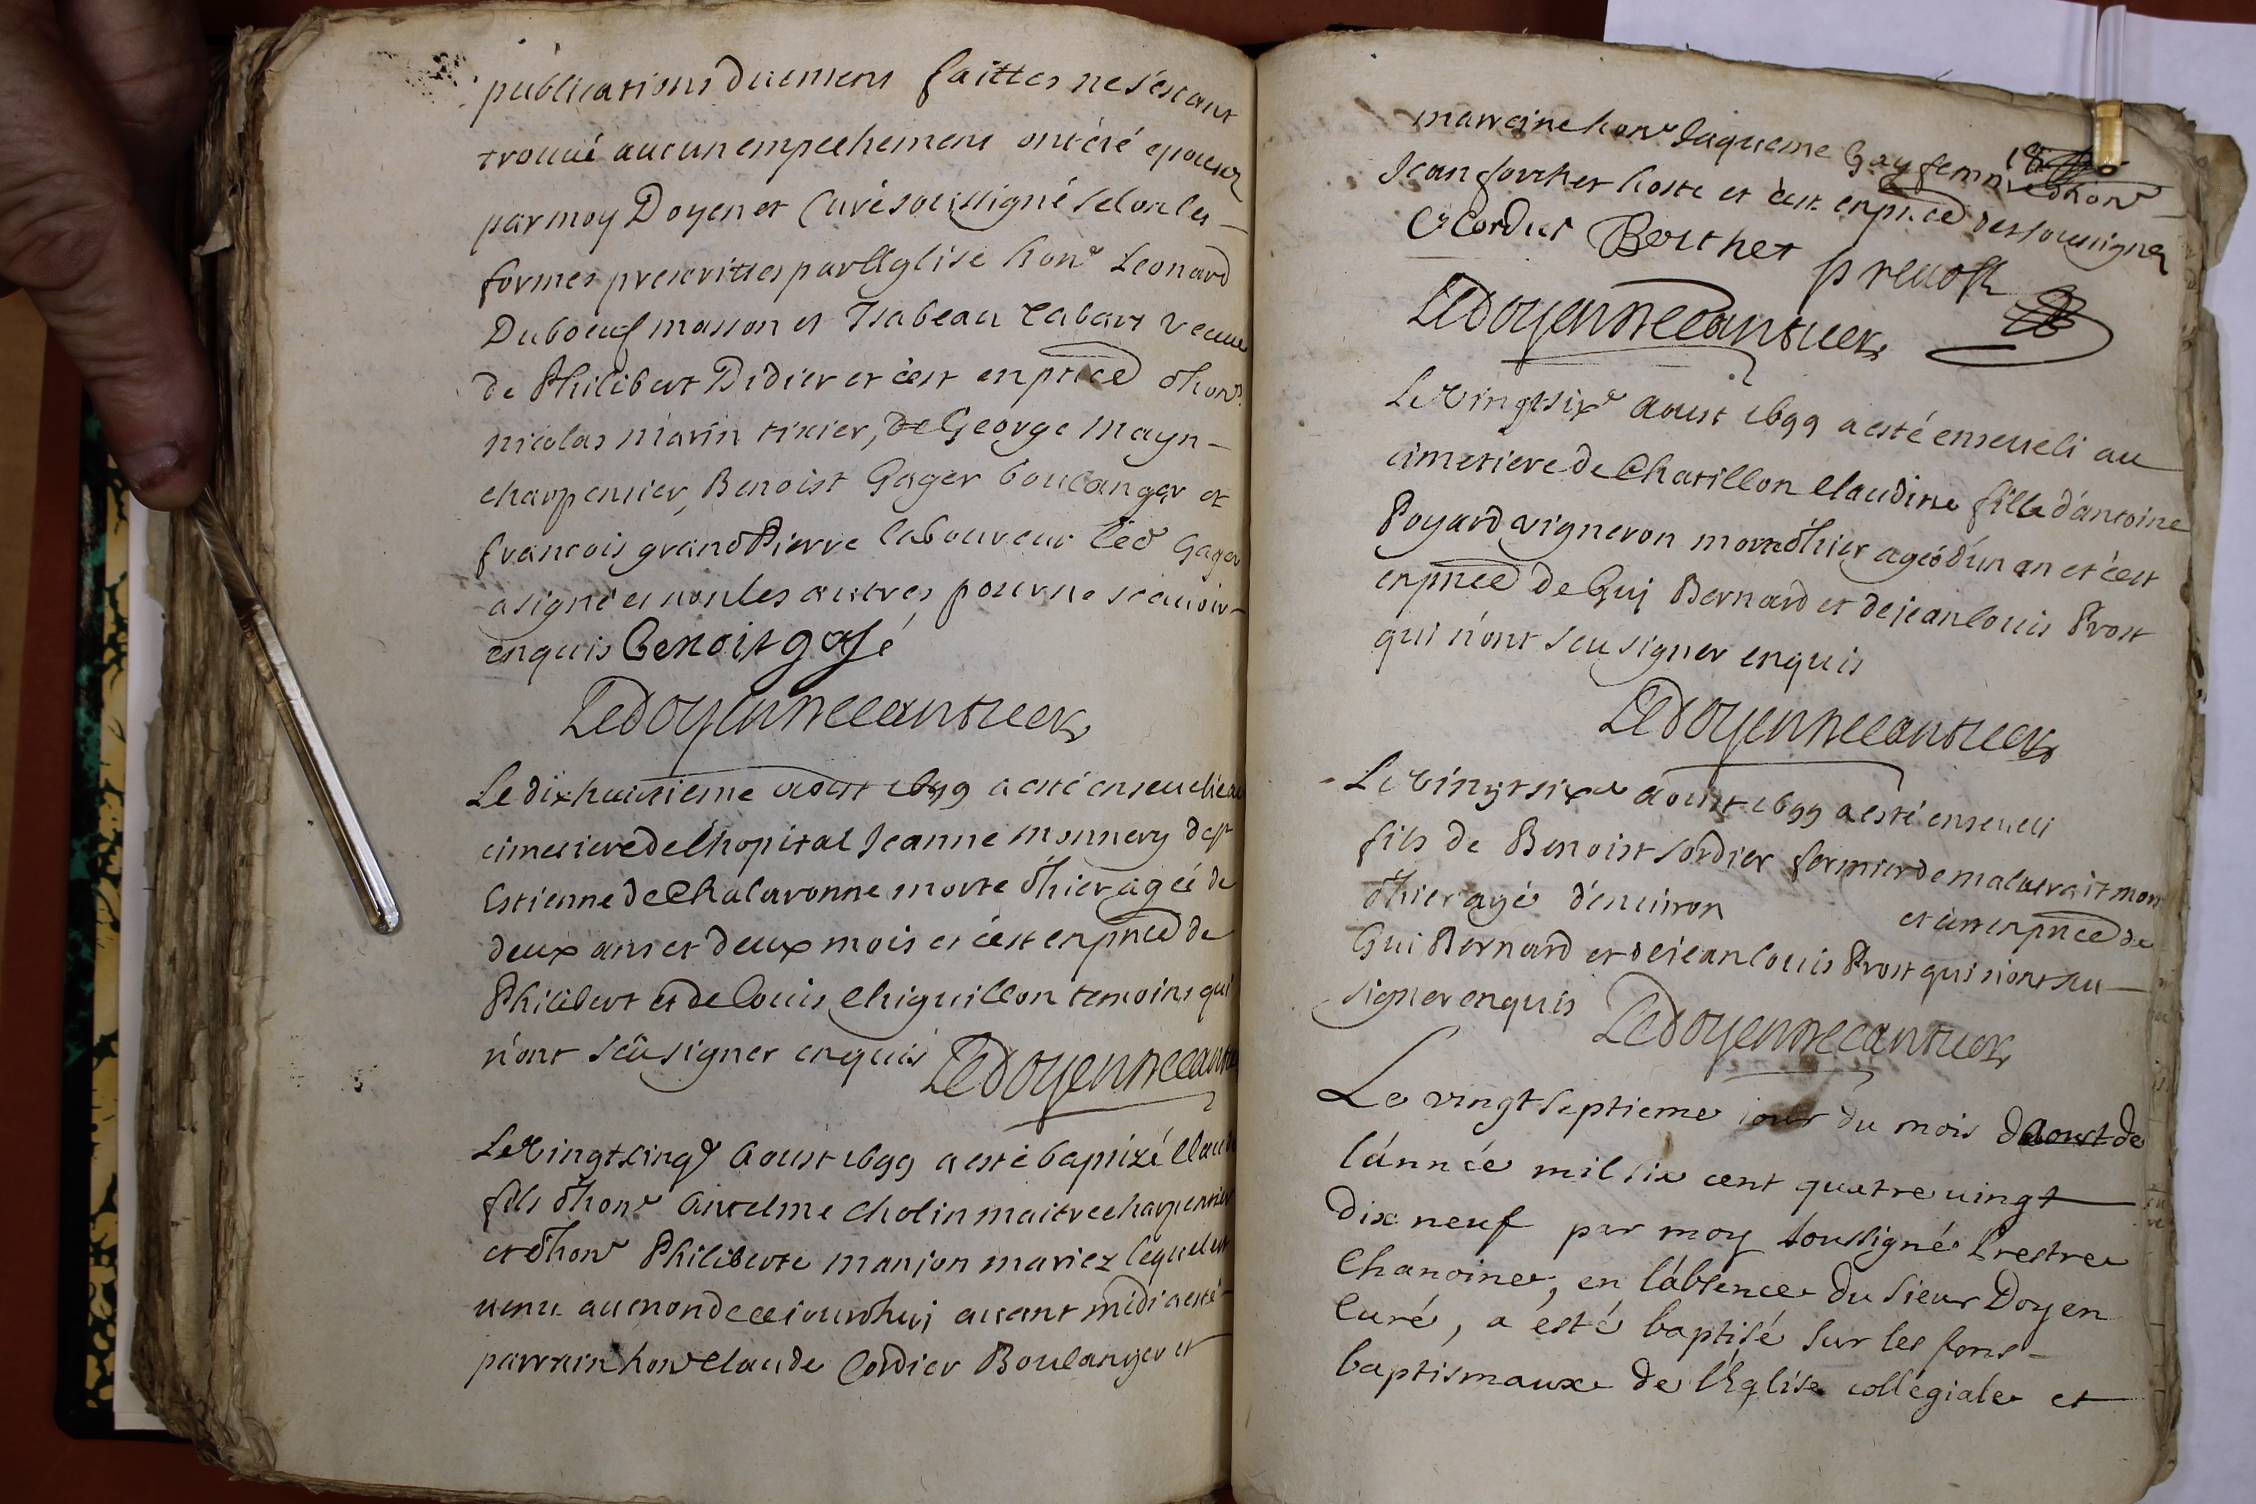 publications duement faittes ne s'estant
trouué aucun empechement ont été epousez
par moy Doyen et Curé soussigné selon les
formes prescrittes par l'Eglise hon.e Leonard
Duboeuf masson et Isabeau Cabart veuue
de Philibert Didier et c'est en pnce d'hon.
nicolas marin tixier, de George mayn
charpentier, Benoist Gager boulanger et
francois grandPierre laboureur led Gager
a signé et non les autres pour ne scauoir
enquis Benoist gasé
Le doyen
Le dixhuitieme aoust 1699 a esté enseuelie au
cimetiere de l'hopital Jeanne monnery de
Estienne de Chalaronne morte d'hier agée de
deux ans et deux mois et c'est en pnce de
Philibert et de Louis Chiguillon temoins qui
n'ont sçû signer enquis Le doyen
Le Vingtcinq Aoust 1699 a esté baptizé Claude
fils d'hon.e Antelme Cholin maitre charpentier
et d'hon.e Philiberte manjon mariez lequel est
uenu au monde ce jourdhuj auant midi a esté
parrain hon.e Claude Cordier Boulanger et
marraine hon.e Jaqueme Gay femme d'hon.e
Jean forcher hoste et c'est en pnce des soussignez
C Cordier Berthet prevost
Le doyen
Le Vingtsix.e Aoust 1699 a esté enseueli au
cimetiere de Chatillon Claudine fille d'antoine
Poyard vigneron morte d'hier ageé d'un an et c'est
en pnce de Guj Bernard et de jean louis Prost
qui n'ont sçu signer enquis
Le doyen
Le Vingtsix.e aoust 1699 a esté enseueli
fils de Benoist Cordier fermier de mort
d'hier agé d'enuiron et c'est en pnce de
Gui Bernard et de jean louis Prost qui n'ont su
signer enquis Le doyen
Le vingt septieme jour du mois daoust de
l'année mil six cent quatre uingt
dix neuf par moy soussigné Prestre
Chanoine, en l'absence du sieur Doyen
Curé, a esté baptisé sur les fons
baptismaux de l'Eglise collegiale et